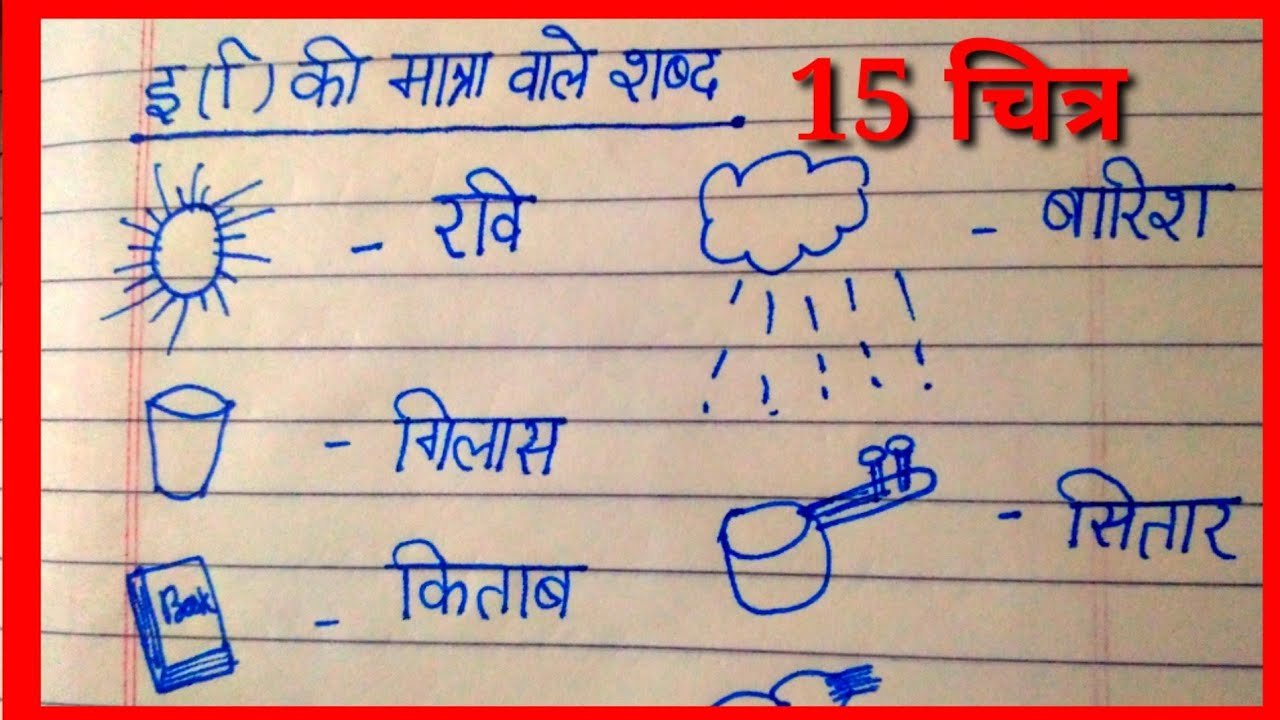 इ(ि) की मात्रा वाले शब्द
15 चित्र
- रवि
- बारिश
- गिलास
- सितार
Book
- किताब